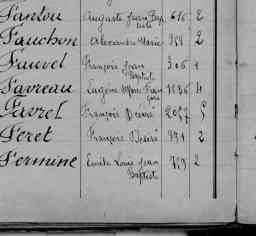 Auguste Jean Bap
tiste 616 2
Fauchon Alexandre Marie 2
Fauvel François Jean 306 1
Baptiste
Favreau Eugène 1836 4
Favrel François Désiré 5
Feret François Désiré 991 2
Fermine Emile Louis Jean 2
Baptiste